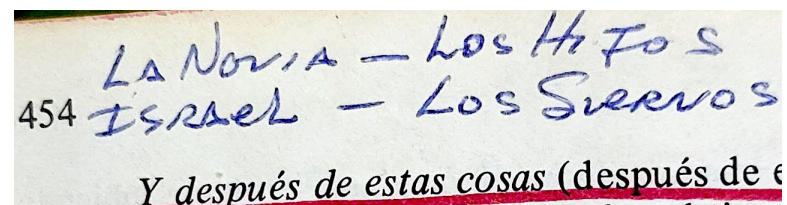 LA NOVIA — LOS HIJOS
454 ISRAEL — LOS SIERVOS
Y después de estas cosas (después de